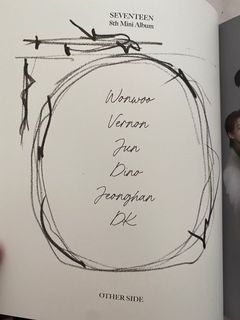 SEVENTEEN
8th Mini Album
Wonwoo
Vernon
Jun
Dino
Jeonghan
DK
OTHER SIDE